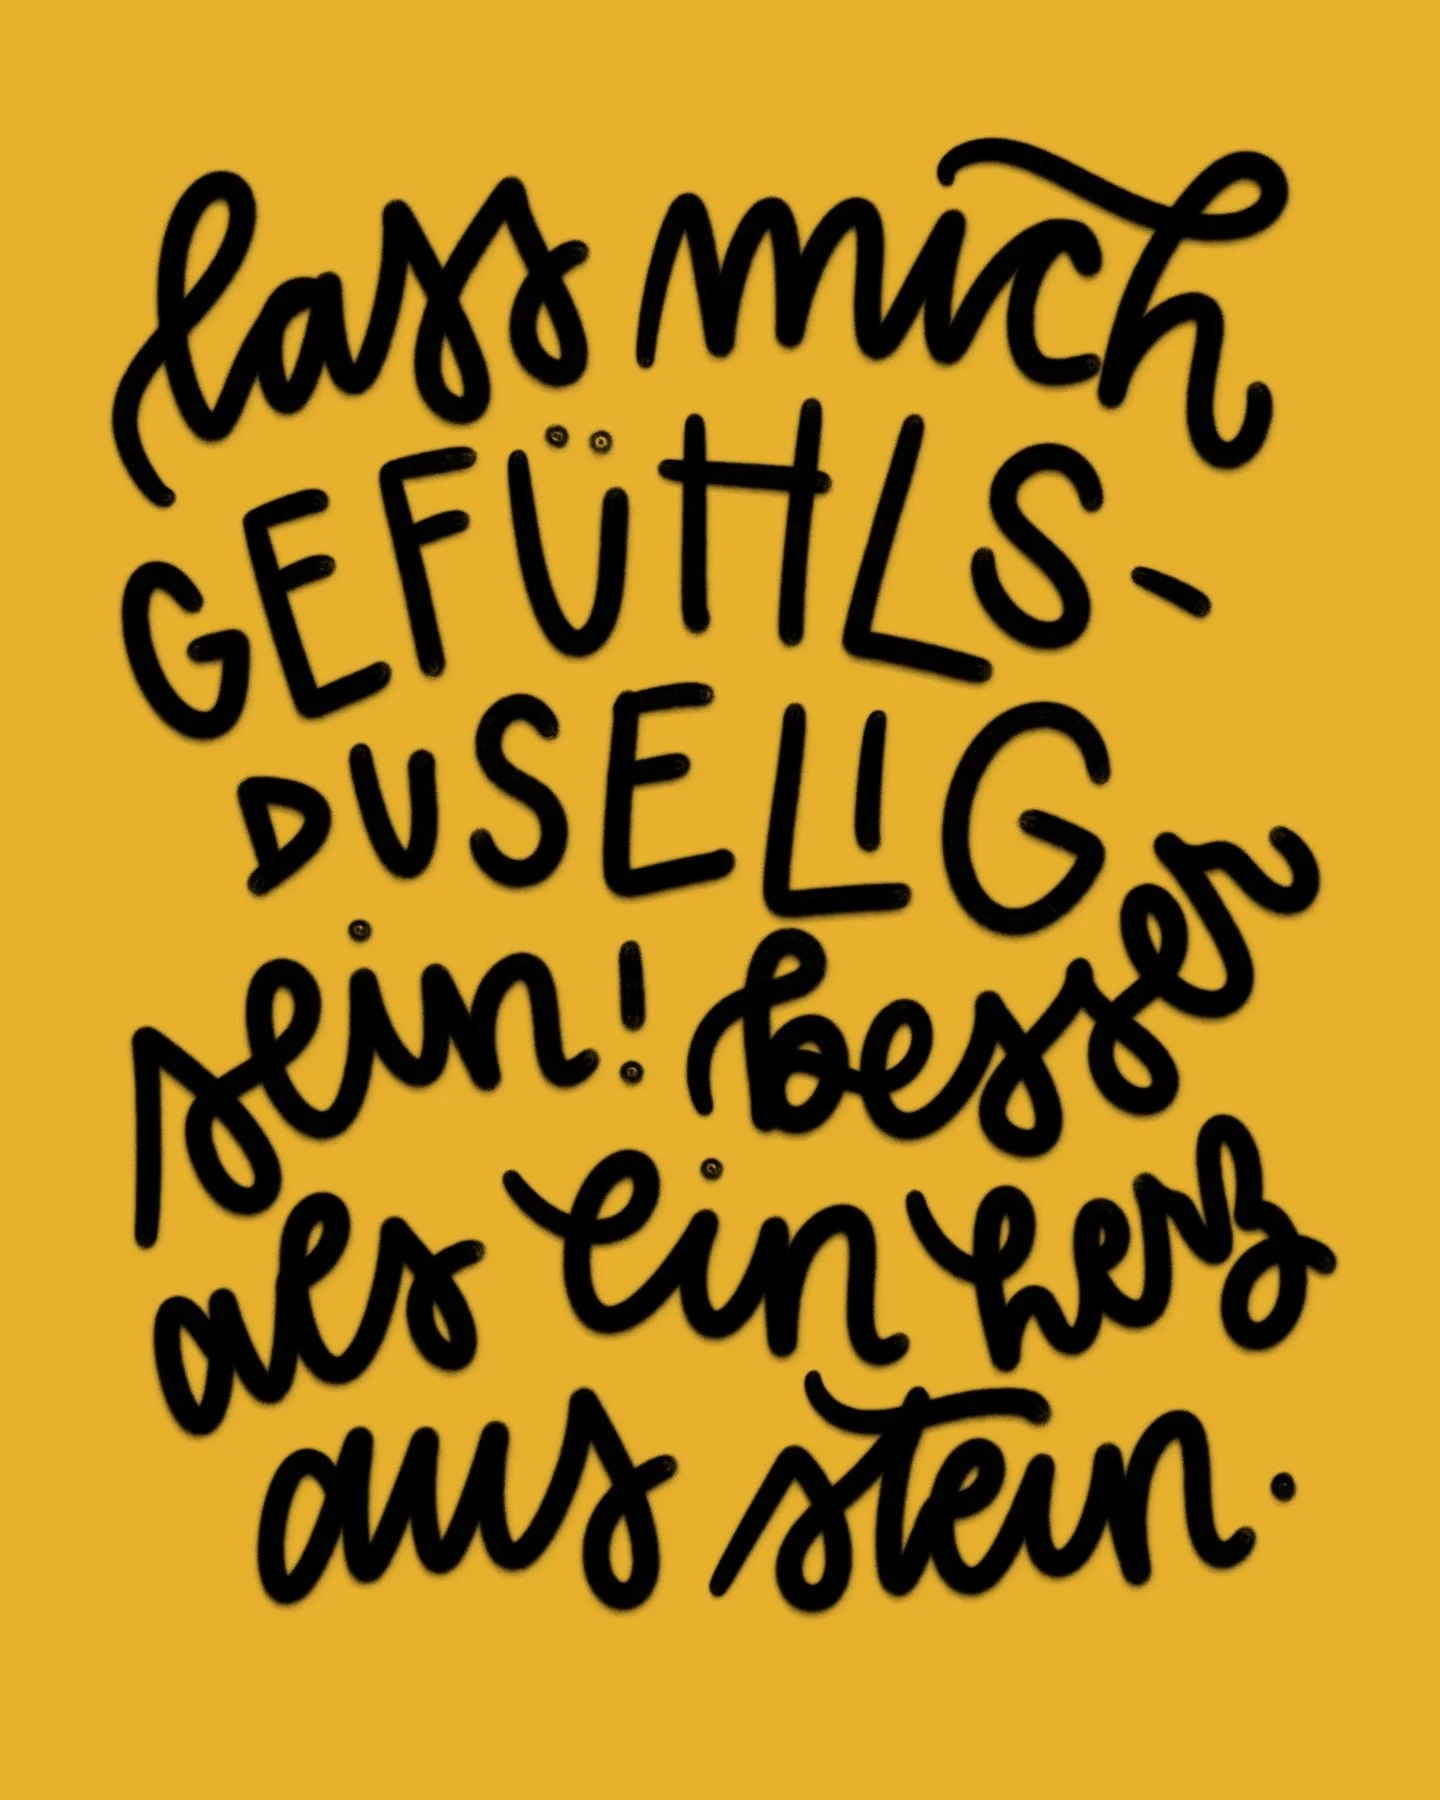 lass mich
GEFÜHLS-
DUSELIG
sein! besser
als ein herz
aus stein.